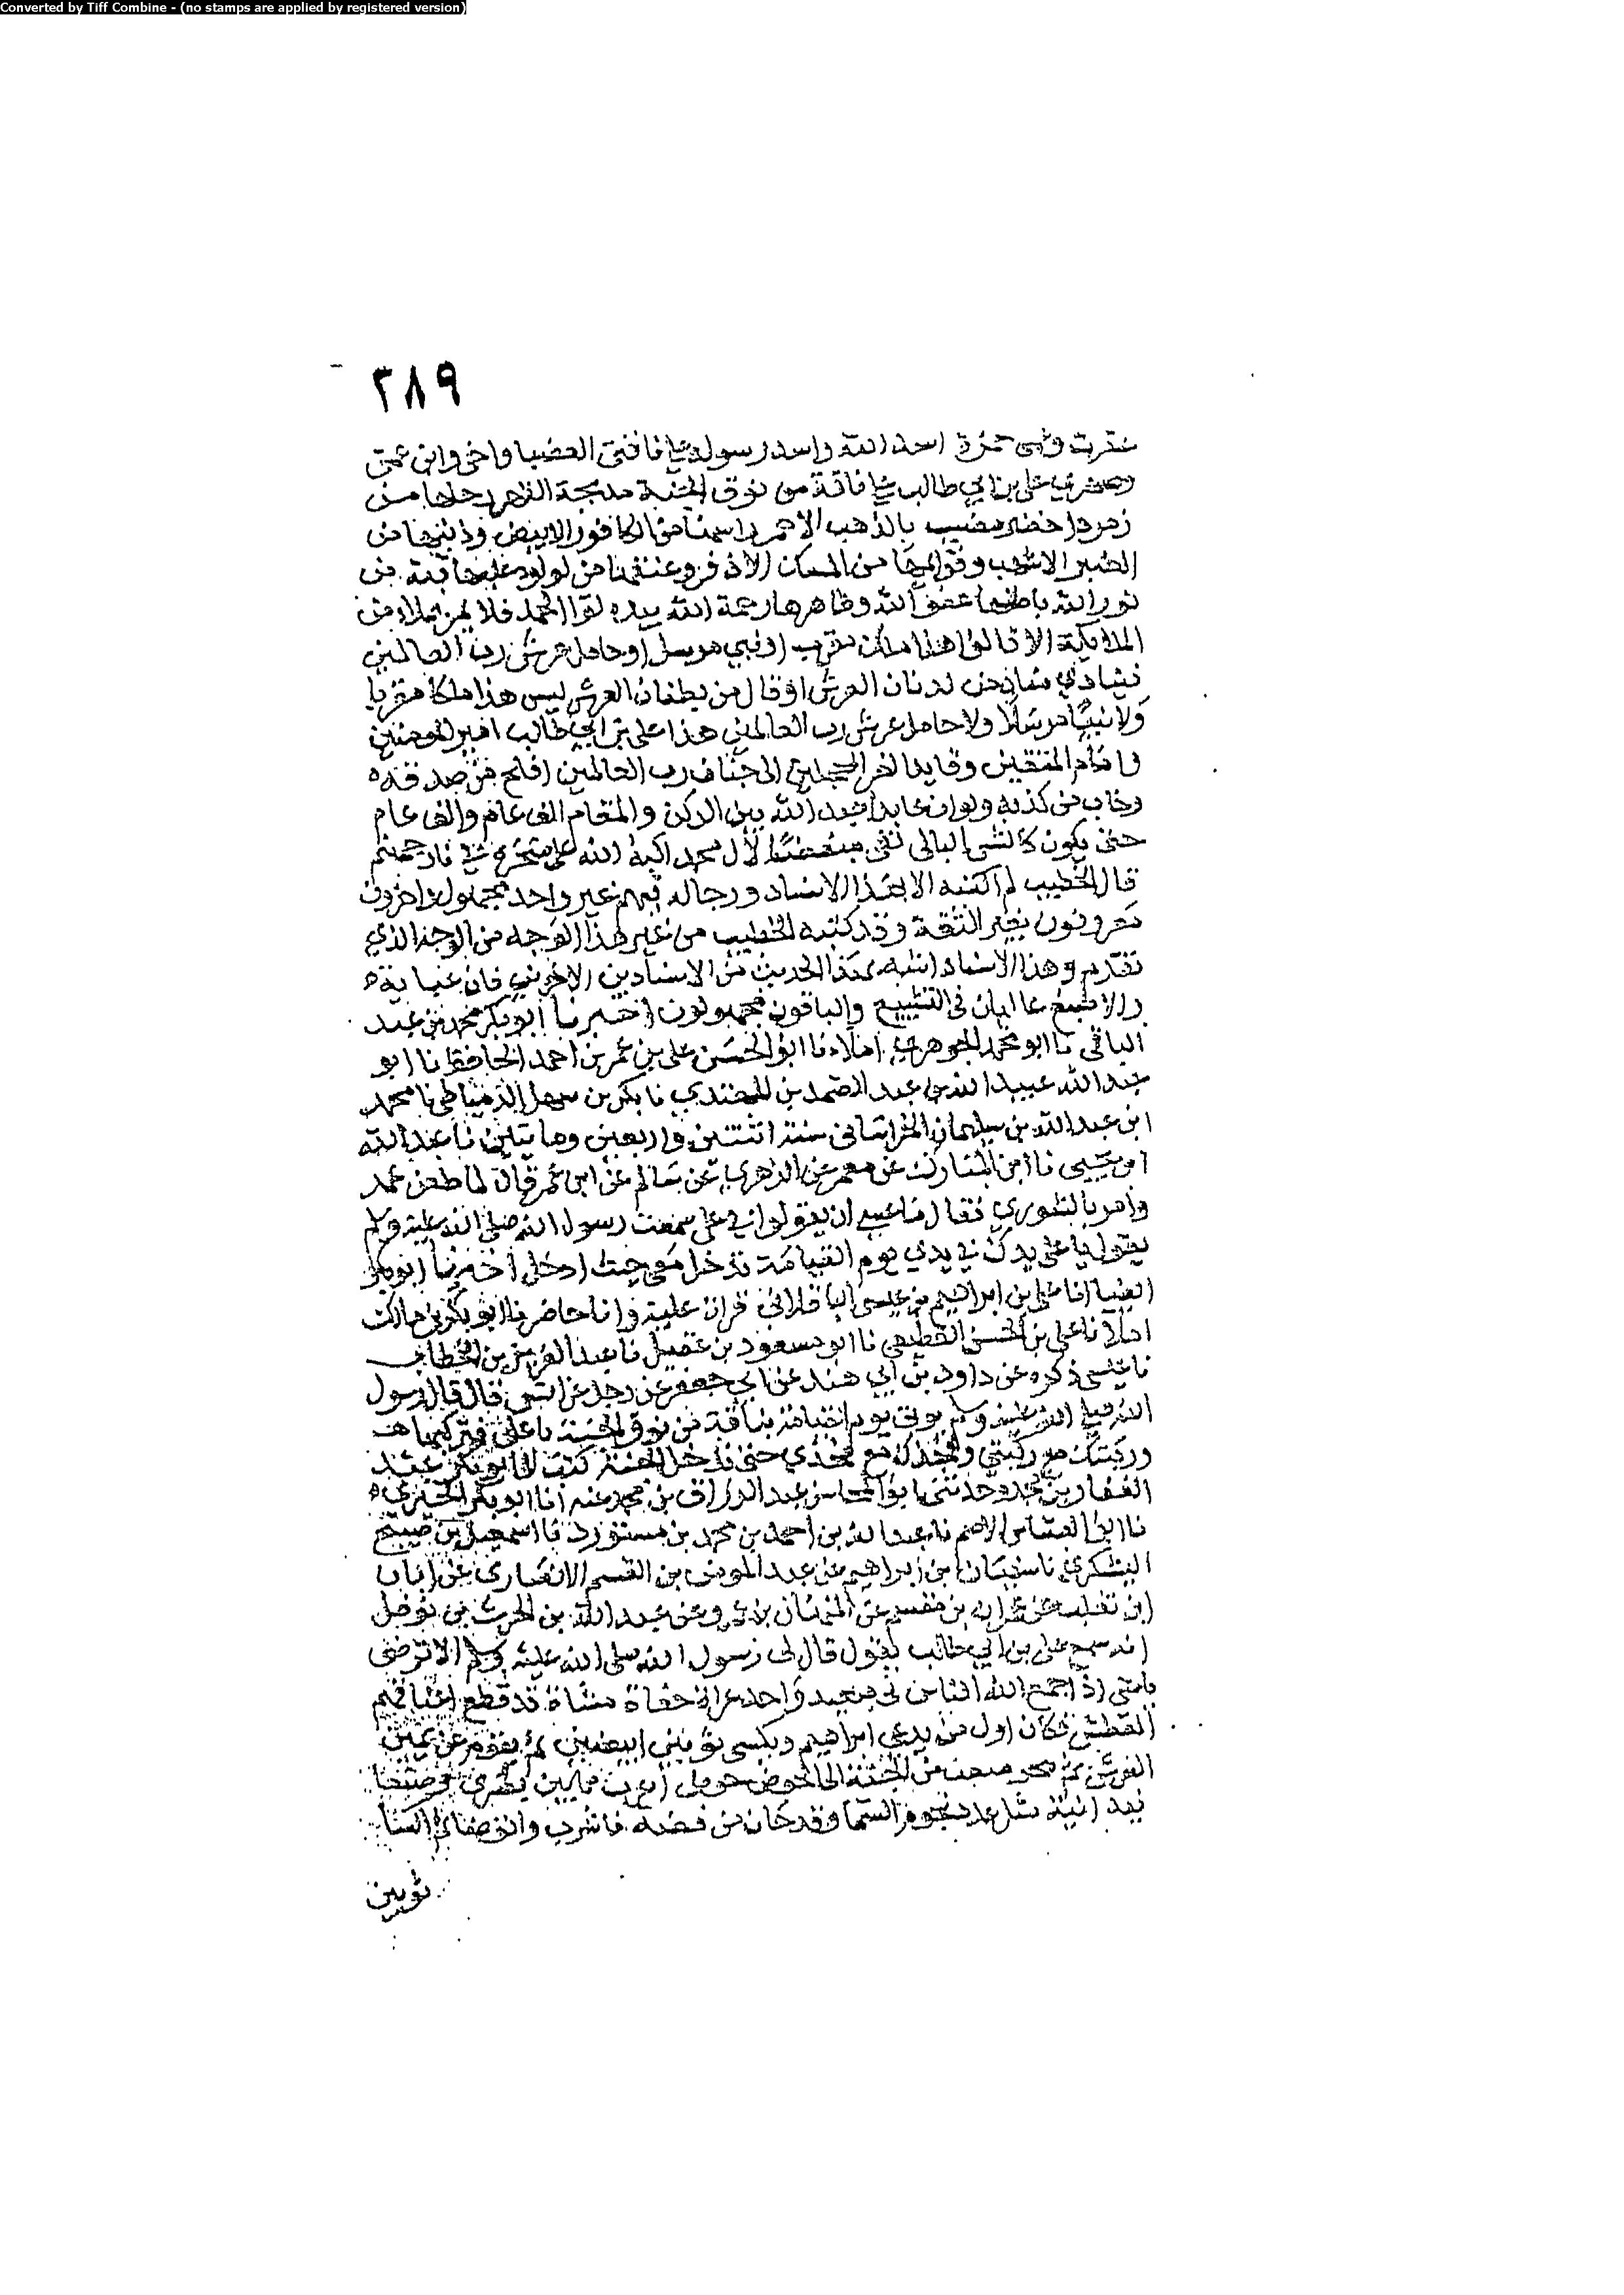 Converted by Tiff Combine - (no stamps are applied by registered version)
٣٨٩
عقرت وعمى حمزة اسد الله واسد رسوله على ناقتى العضبا واخى وابن عمى
وصهرى على بن ابي طالب على ناقة من نوق الجنة مدبجة الظهر رحلها من
زمرد اخضر مضبب بالذهب الاحمر راسها من الكافور الابيض وذنبها من
العنبر الاشهب وقوايمها من المسك الاذفر وعنقها من لولو وعليها قبة من
نور الله باطنها عفو الله وظاهرها رحمة الله بيده لوا الحمد فلا يمر بملاء من
الملايكة الا قالوا هذا ملك مقرب او نبي مرسل او حامل عرش رب العالمين
فينادي مناد من لدنان العرش او قال من بطنان العرش ليس هذا ملكا مقربا
ولا نبيا مرسلا ولا حامل عرش رب العالمين هذا على بن ابي طالب امير المومنين
وامام المتقين وقايد الغر المحجلين الى جنان رب العالمين افلح من صدقه
وخاب من كذبه ولو ان عابدا عبد الله بين الركن والمقام الف عام والف عام
حتى يكون كالشن البالى لقى مبغضا لال محمد اكبه الله على منخره في نار جهنم
قال الخطيب لم اكتبه الا بهذا الاسناد ورجاله فيهم غير واحد مجهول واخرون
معروفون بغير الثقة وقد كتبه الخطيب من غير هذا الوجه من الوجه الذي
تقدم وهذا الاسناد اشبه بهذا الحديث من الاسنادين الاخرين فان عباية
والاصبغ غاليان فى التشيع والباقون مجهولون اخبرنا ابو بكر محمد بن عبد
الباقى نا ابو محمد الجوهري املاء نا ابو الحسن على بن عمر بن احمد الحافظ نا ابو
عبد الله عبيد الله بن عبد الصمد بن المهتدي نا بكر بن سهل الدمياطى نا محمد
ابن عبد الله بن سليمان الخراسانى سنة اثنتين واربعين ومايتين نا عبد الله
ابن يحيى نا ابن المبارك عن معمر عن الزهري عن سالم عن ابن عمر قال لما طعن عمر
وامر بالشورى فقال ما عسى ان يقولوا في على سمعت رسول الله صلى الله عليه وسلم
يقول يا على يدك في يدي يوم القيامة تدخل معى حيث ادخل اخبرنا ابو بكر
ايضا انا على بن ابراهيم بن عيسى الباقلانى قراة عليه وانا حاضر نا ابو بكر بن مالك
املا نا على بن الحسن القطيعى نا ابو مسعود بن عقيل نا عبد العزيز بن الخطاب
نا عيسى ذكره عن داود بن ابي هند عن ابي جعفر عن رجل عن انس قال قال رسول
الله صلى الله عليه وسلم يوتى يوم القيامة بناقة من نوق الجنة يا على فتركبها
وركبتك مع ركبتي وفخذك مع فخذي حتى تدخل الجنة كتب لنا ابو بكر عبد
الغفار بن محمد وحدثنى ابو المحاسن عبد الرزاق بن محمد عنه انا ابو بكر الحيري
نا ابو العباس الاصم نا عبد الله بن احمد بن محمد بن مستورد نا اسمعيل بن صبيح
اليشكري نا سفيان بن ابراهيم عن عبد المومن بن القسم الانصاري عن ابان
ابن تغلب عن عن المنهال بن عمرو عن عبد الله بن الحرث بن نوفل
انه سمع على بن ابي طالب يقول قال لى رسول الله صلى الله عليه وسلم الا ترضى
يا على اذا جمع الله الناس فى صعيد واحد عراة حفاة مشاة قد قطع اعناقهم
العطش فكان اول من يدعى ابراهيم ويكسى ثوبين ابيضين ثم يقوم عن يمين
العرش ثم مثعب من الجنة الى الحوض حوضى
فيه انية مثل عدد نجوم السما وقدحان من فضة فاشرب واتوضا ثم اكسا
ثوبين